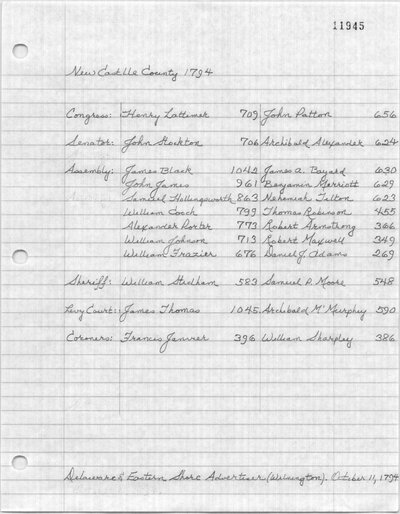 11945
New Castle County 1794
Congress: Henry Latimer 709 John Patton 656
Senator: John Stockton 706 Archibald Alexander 624
Assembly: James Black 1042 James A. Bayard 630
John James 961 Benjamin Merriott 629
Samuel Hollingsworth 863 Nehemiah Tilton 623
William Cooch 799 Thomas Robinson 455
Alexander Porter 773 Robert Armstrong 366
William Johnson 713 Robert Maxwell 349
William Frazier 676 Daniel J. Adams 269
Sheriff: William Stidham 583 Samuel P. Moore 548
Levy Court: James Thomas 1045 Archibald M'Murphey 590
Coroners: Francis Janvier 396 William Sharpley 386
Delaware & Eastern Shore Advertiser (Wilmington). October 11, 1794